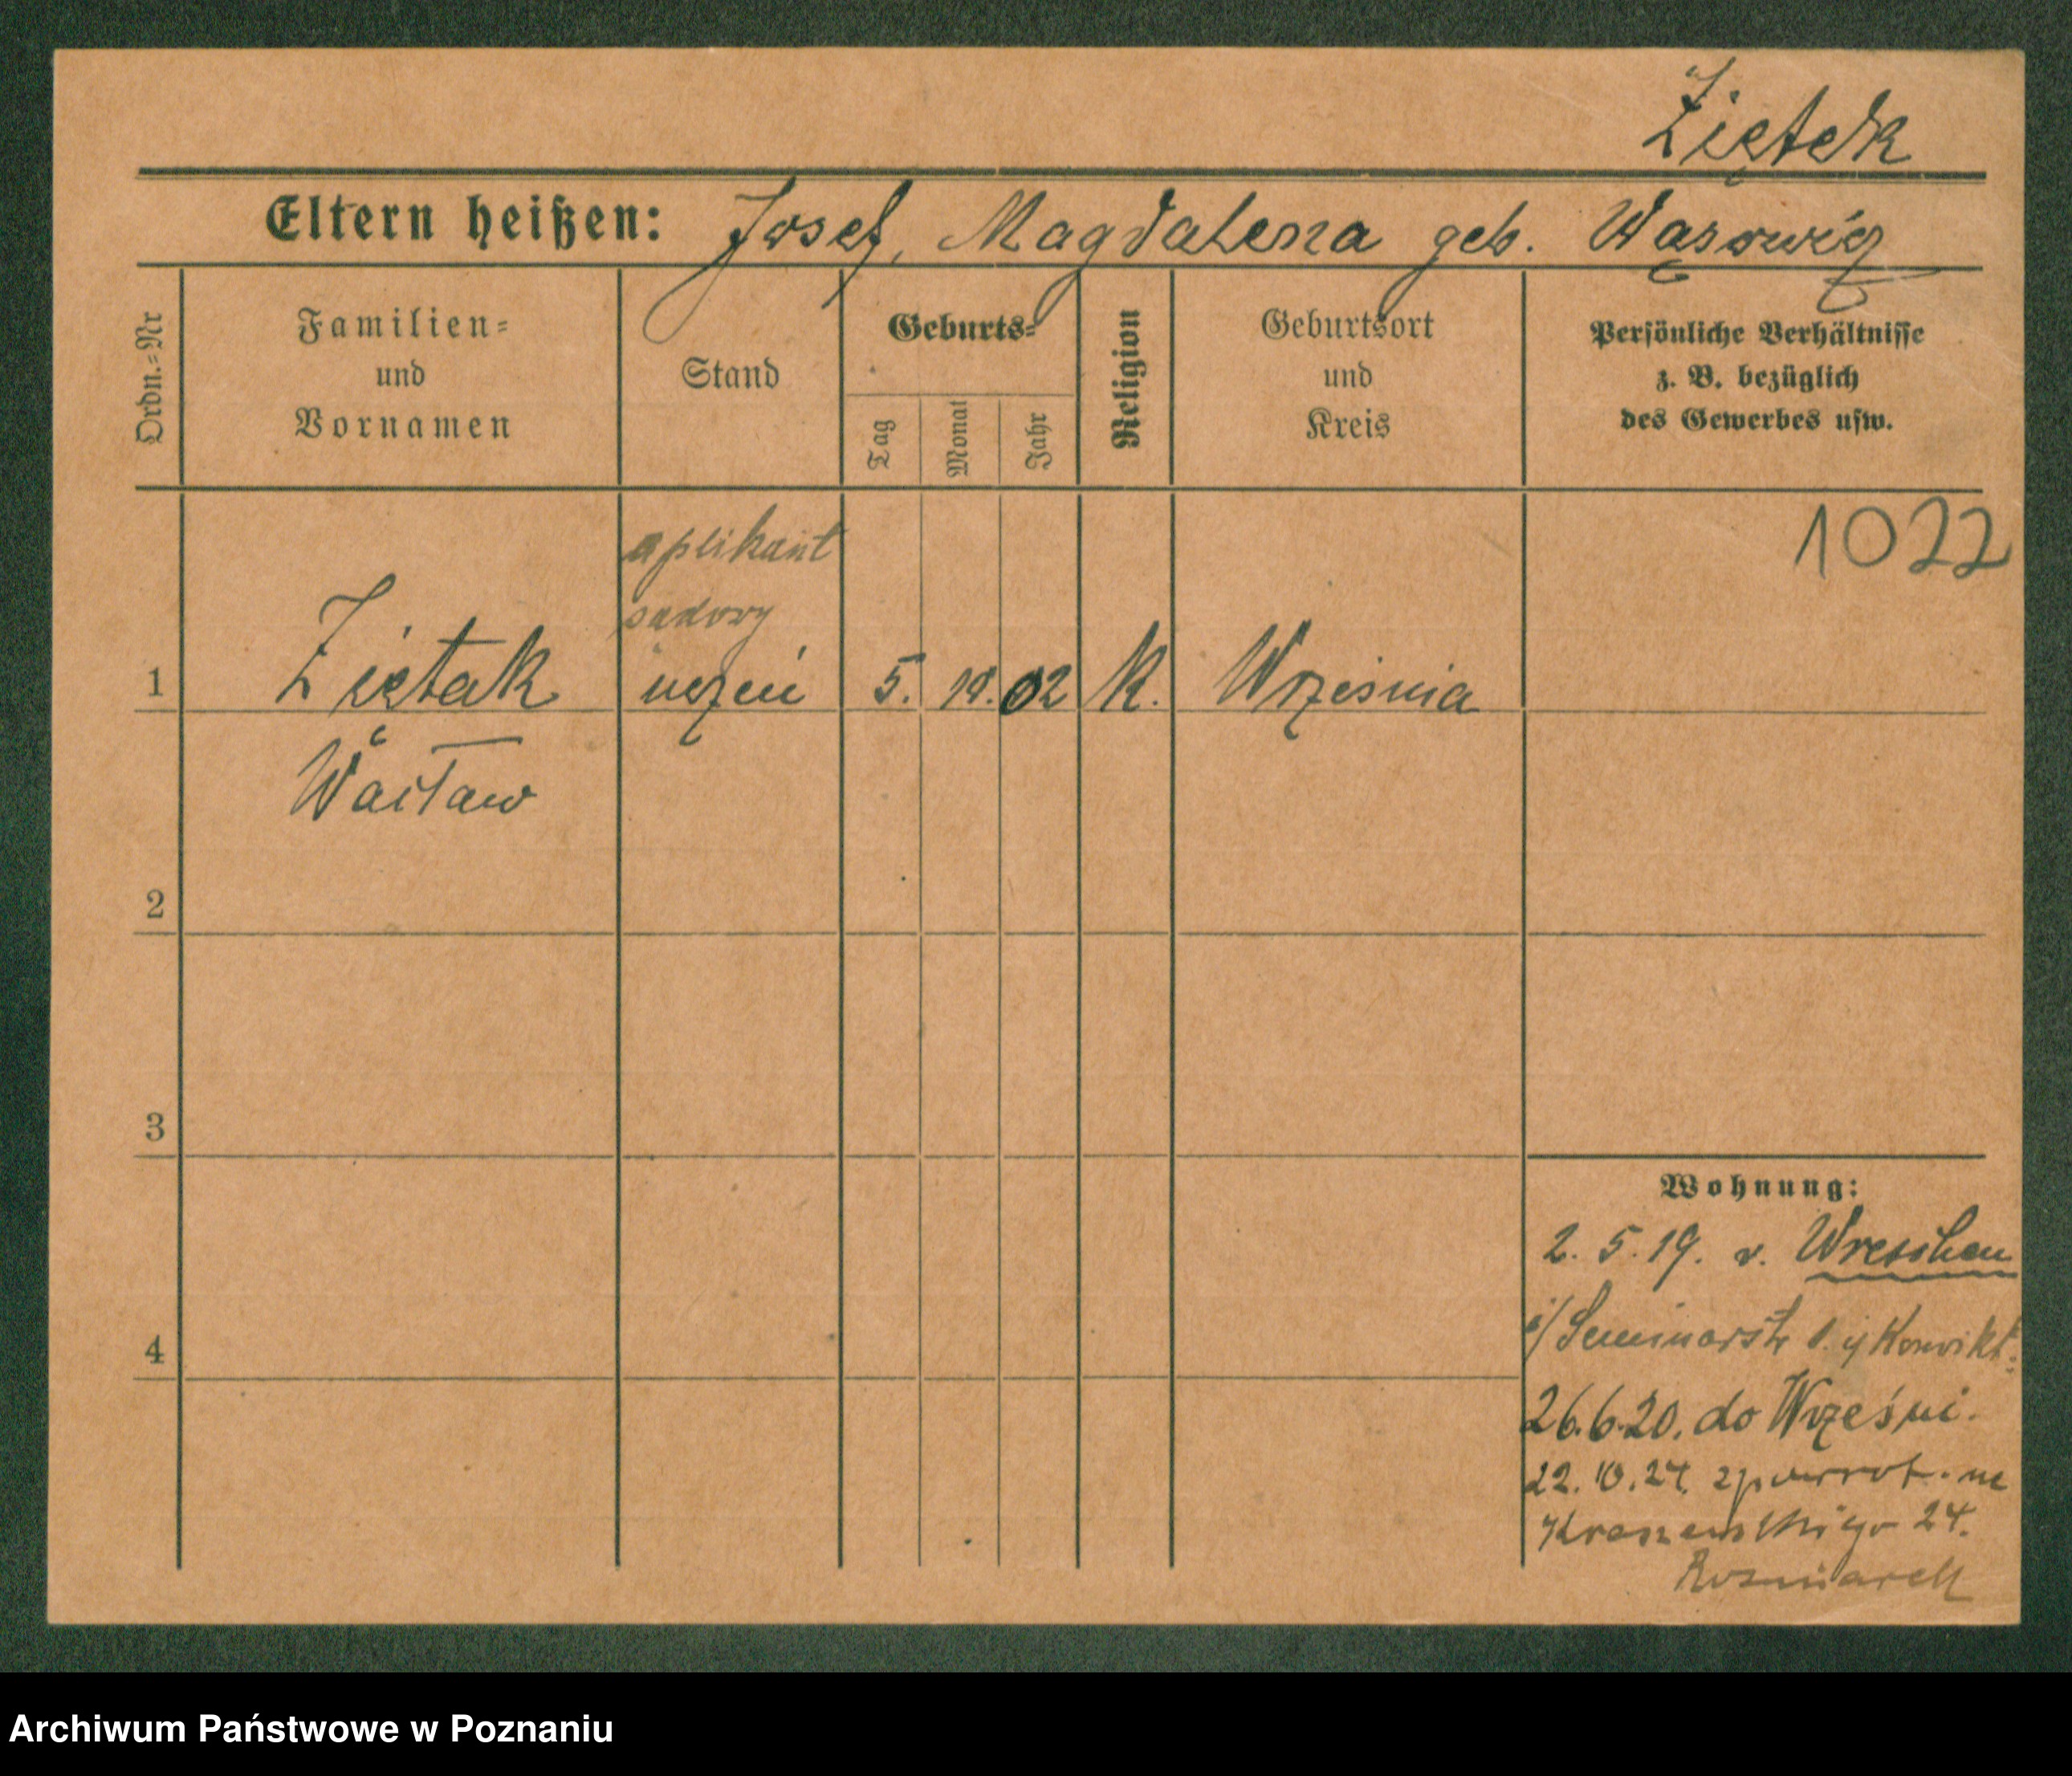 Ziętek
Eltern heißen: Josef, Magdalena geb. Wąsowicz
Ordn.-Nr
Familien-
und
Vornamen
Stand
Geburts-
Tag
Monat
Jahr
Religion
Geburtsort
und
Kreis
Persönliche Verhältnisse
z. B. bezüglich
des Gewerbes usw.
1022
aplikant
sądowy
1 Ziętak uczeń 5. 02 K. Września
Wacław
2
3
4
Wohnung:
2. 5. 19. v. Wreschen
Seminarstr Konvikt
26.6.20. do Wrześni.
22. 10. 24. zpowrot. na
Kraszewskiego 24.
Archiwum Państwowe w Poznaniu